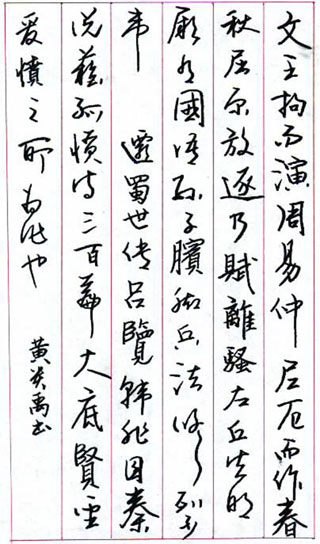 文王拘而演周易仲尼厄而作春
秋屈原放逐乃賦離騷左丘失明
厥有國语孫子臏腳兵法修列不
韦 遷蜀世传吕覽韩非囚秦
说難孤憤诗三百篇大底賢聖
发憤之所为作也 黄禹书